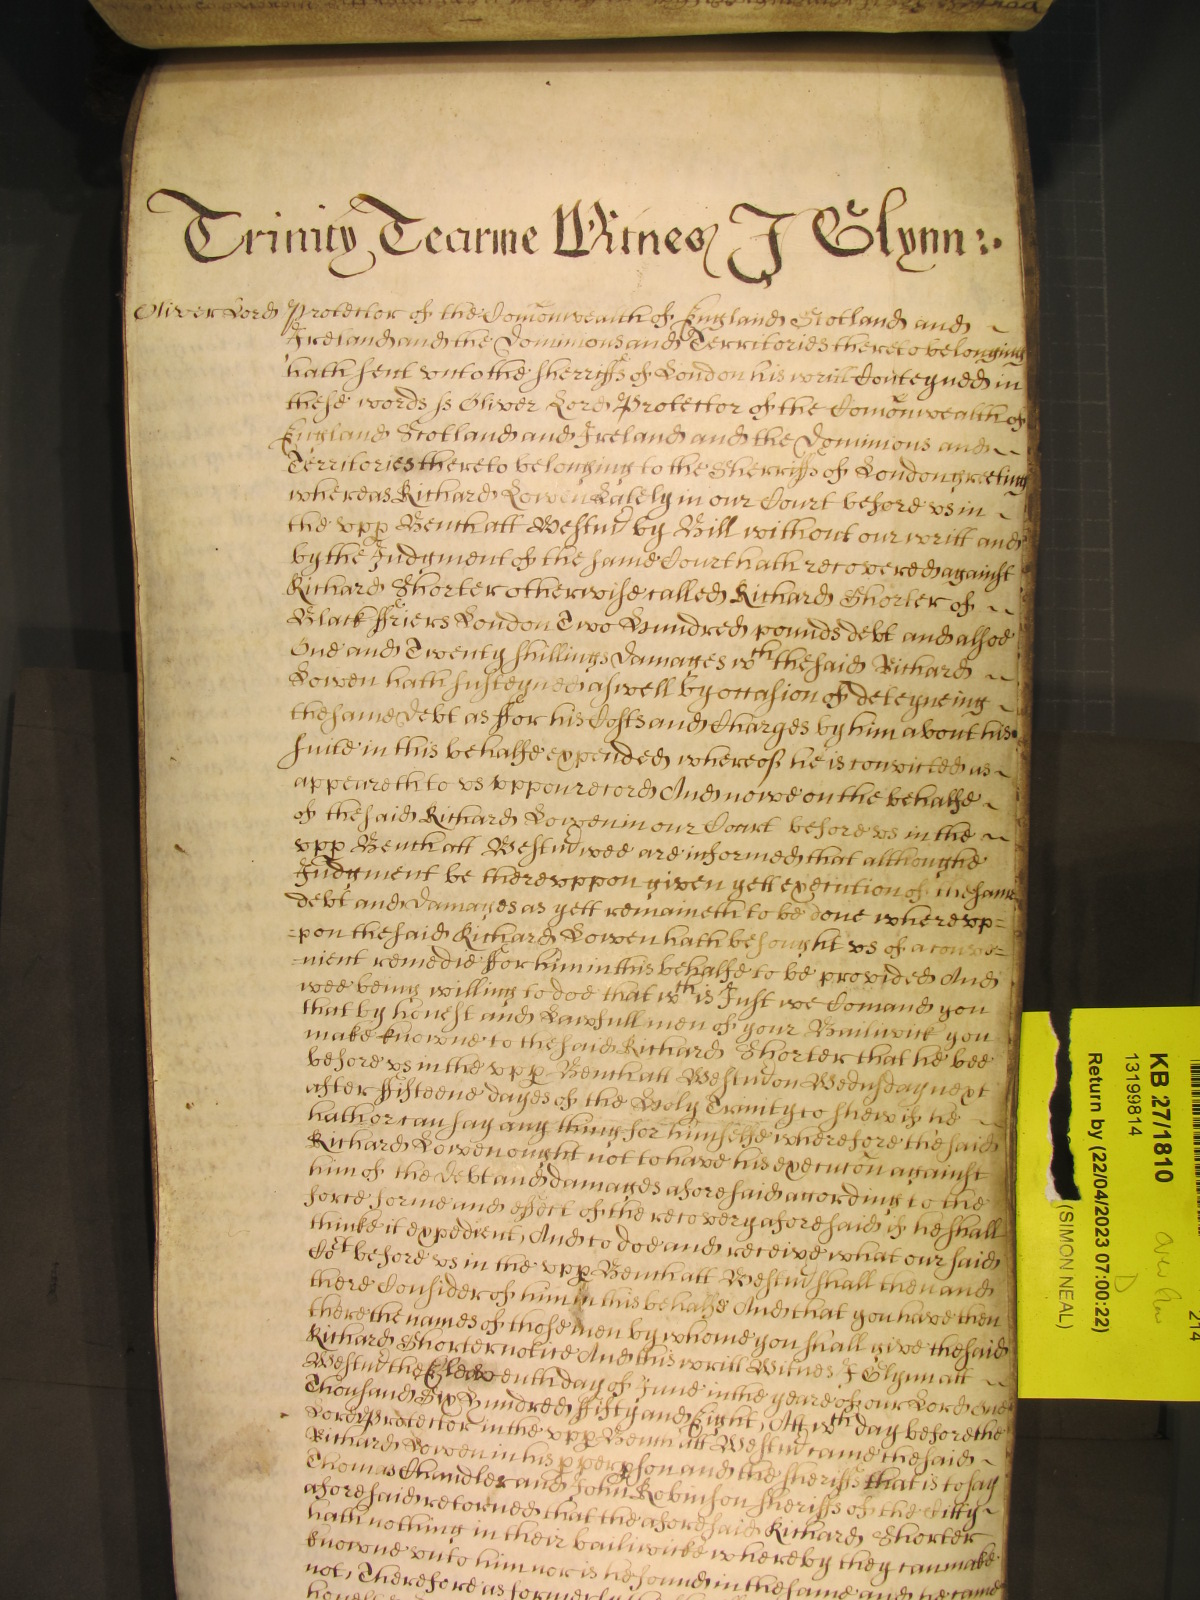 Trinity Tearme Witnes J Glynn
Oliver Lord Protector of the Comonwealth of England Scotland and
Ireland and the Dominions and Territories thereto belonging
hath sent unto the Sherriffs of London his writt Conteyned in
these words ss Oliver Lord Protector of the Comonwealth of
England Scotland and Ireland and the Dominions and
Territories thereto belonging to the Sherriffs of London greeting
whereas Richard Lowen Lately in our Court before us in
the upp Bench att Westmr by Bill without our writt and
by the Judgment of the same Court hath recovered against
Richard Shorter otherwise called Richard Shorter of
Black Friers London Two Hundred pounds debt and alsoe
One and Twenty shillings Damages wth the said Richard
Lowen hath susteyned aswell by occasion of deteyneing
the same Debt as ffor his Costs and Charges by him about his
suite in this behalfe expended whereof he is convicted as
appeareth to us uppon record And nowe on the behalfe
of the said Richard Lowen in our Court before us in the
upp Bench att Westmr wee are informed that althoughe
Judgment be thereuppon given yett execution of the same
debt and Damages as yett remaineth to be done whereup=
=pon the said Richard Lowen hath besought us of a conve=
=nient remedie ffor him in this behalfe to be provided And
wee being willing to doe that wth is Just we Comand you
that by honest and Lawfull men of your Bailiwick you
make knowne to the said Richard Shorter that he bee
before us in the upp Bench att Westmr on Wednsday next
after ffifteene dayes of the Holy Trinity to shew if he
hath or can say any thing for himselfe wherefore the said
Richard Lowen ought not to have his execucon against
him of the debt and damages aforesaid according to the
force forme and effect of the recovery aforesaid if he shall
thinke it expedient, And to doe and receive what our said
Cort before us in the upp Bench att Westmr shall then and
there Consider of him in this behalfe And that you have then
there the names of those men by whome you shall give the said
Richard Shorter notice And this writt Witnes J Glynn att
Westmr the Eleaventh day of June in the yeare of our Lord One
Thousand Six Hundred ffifty and Eight, Att wth day before the
Lord Protector in the upp Bench att Westmr came the said
Richard Lowen in his pper person and the sheriffs that is to say
Thomas Chandler and John Robinson sheriffs of the Citty
aforesaid retorned that the aforesaid Richard Shorter
hath nothing in their bailiwicke whereby they can make
knowne unto him nor is he found in the same and he came
not, Therefore as formerly
KB 27/1810
13199814
Return by (22/04/2023 07:00:22)
(SIMON NEAL)
214